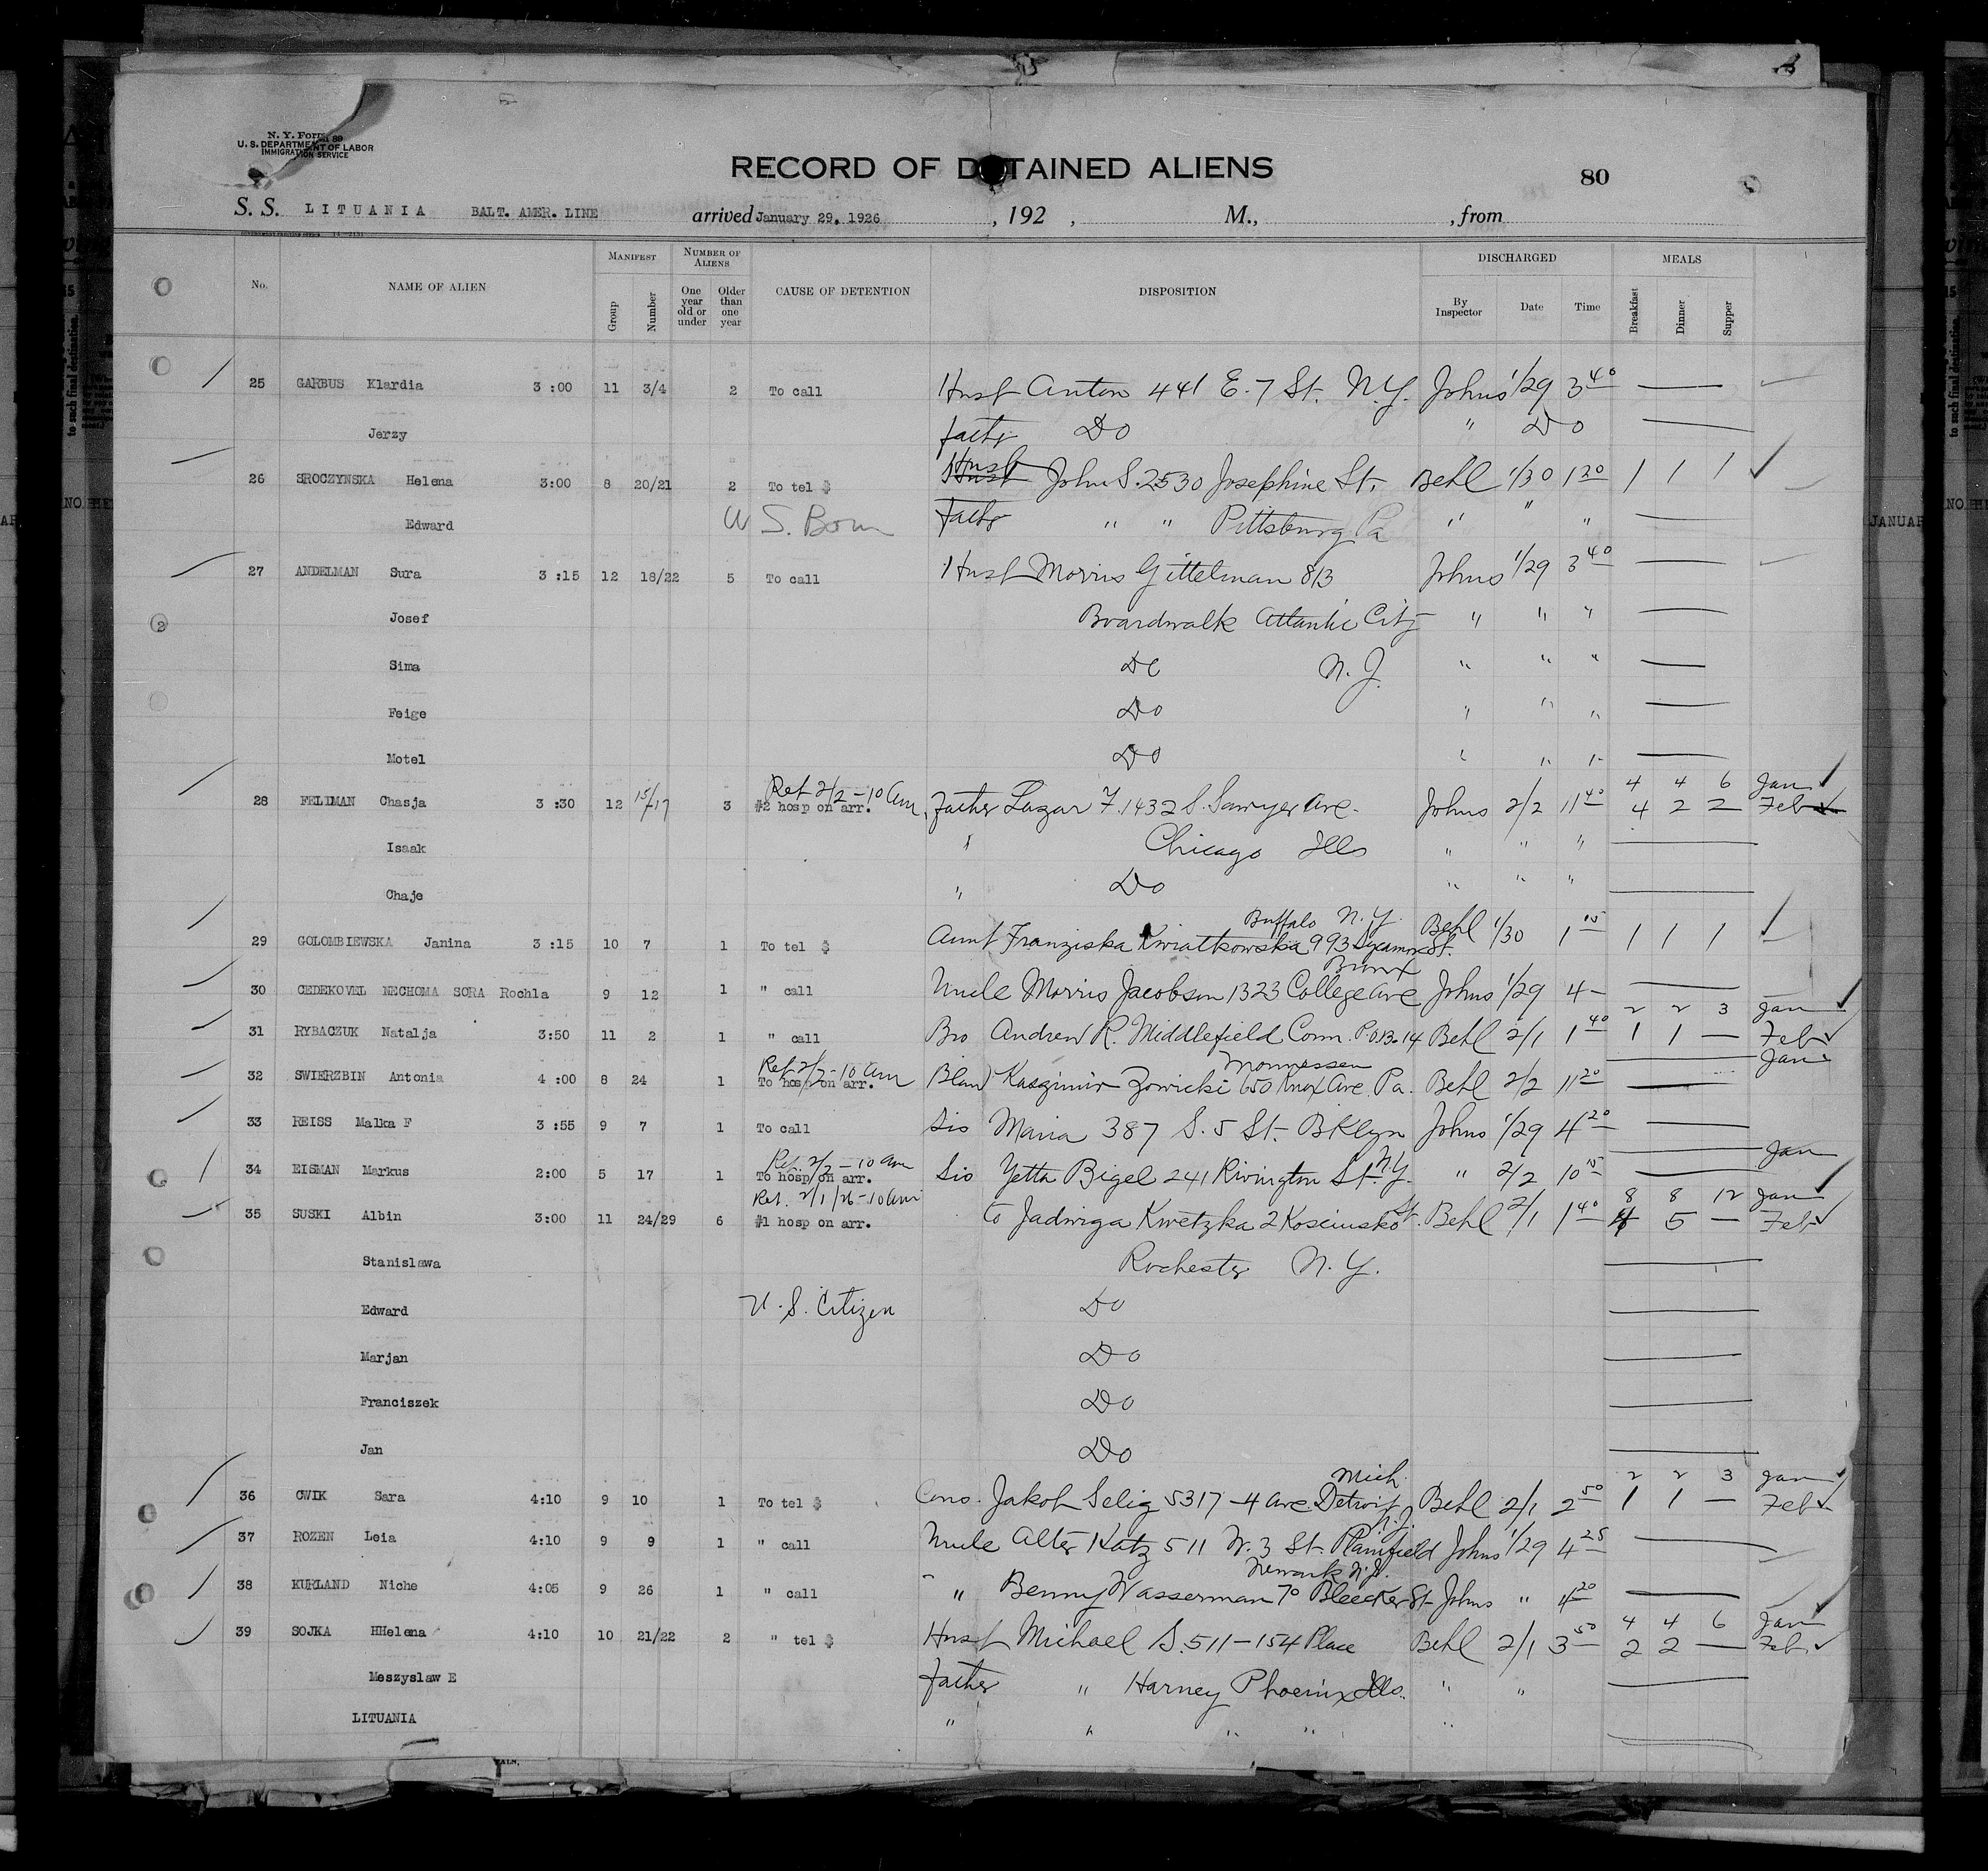 N. Y. Form 89
U. S. DEPARTMENT OF LABOR
IMMIGRATION SERVICE
RECORD OF DETAINED ALIENS
80
S. S. LITUANIA BALT. AMER. LINE arrived January 29, 1926, 192 , M., , from
No. NAME OF ALIEN MANIFEST Group Number NUMBER OF ALIENS One year old or under Older than one year CAUSE OF DETENTION DISPOSITION DISCHARGED By Inspector Date Time MEALS Breakfast Dinner Supper
25 GARBUS Klardia 3 :00 11 3/4 2 To call Husb Anton 441 E. 7 St. N.Y. Johns 1/29 3 40
Jerzy Father Do " Do
26 SROCZYNSKA Helena 3:00 8 20/21 2 To tel $ Husb John S. 2530 Josephine St. Behl 1/30 1 20 1 1 1
Edward U S. Born Father " " Pittsburg Pa " " "
27 ANDELMAN Sura 3 :15 12 18/22 5 To call Husb Morris Gittelman 813 Johns 1/29 3 40
Josef Boardwalk Atlantic City " " "
Sima Do N. J. " " "
Feige Do " " "
Motel Do " " "
Ret 2/2 - 10 am 4 4 6 Jan
28 FELDMAN Chasja 3 :30 12 15/17 3 #2 hosp on arr. Father Lazar F. 1432 S. Sawyer Ave. Johns 2/2 11 40 4 2 2 Feb
Isaak " Chicago Ills " " "
Chaje " Do " " "
Buffalo N.Y.
29 GOLOMBIEWSKA Janina 3 :15 10 7 1 To tel $ Aunt Franziska Kwiatkowska 993 Sycamore St. Behl 1/30 1 15 1 1 1
Bronx
30 CEDEKOVEL NECHOMA SORA Rochla 9 12 1 " call Uncle Morris Jacobson 1323 College Ave Johns 1/29 4 -
2 2 3 Jan
31 RYBACZUK Natalja 3:50 11 2 1 " call Bro Andrew R. Middlefield Conn. P.O.B. 14 Behl 2/1 1 40 1 1 - Feb
Ret 2/2 - 10 am Monnessen Jan
32 SWIERZBIN Antonia 4 :00 8 24 1 To hosp on arr. Blaw Kaszimir Zowicki 650 Knox Ave. Pa. Behl 2/2 11 20
33 REISS Malka F 3 :55 9 7 1 To call Sis Maria 387 S. 5 St. Bklyn Johns 1/29 4 20
Ret. 2/2 - 10 am Jan
34 EISMAN Markus 2:00 5 17 1 To hosp on arr. Sis Yetta Bigel 241 Rivington St. N.Y. " 2/2 10 15
Ret. 2/1/26 - 10 am 8 8 12 Jan
35 SUSKI Albin 3:00 11 24/29 6 #1 hosp on arr. to Jadwiga Kwetzka 2 Kosciusko St. Behl 2/1 1 40 4 5 - Feb
Stanislawa Rochester N. Y.
Edward U. S. Citizen Do
Marjan Do
Franciszek Do
Jan Do
Mich. 2 2 3 Jan
36 CWIK Sara 4:10 9 10 1 To tel $ Cons. Jakob Selig 5317 - 4 Ave. Detroit Behl 2/1 2 50 1 1 - Feb
N.J.
37 ROZEN Leia 4:10 9 9 1 " call Uncle Alter Katz 511 W. 3 St. Plainfield Johns 1/29 4 25
Newark N.J.
38 KURLAND Niche 4:05 9 26 1 " call " Benny Wasserman 70 Bleecker St Johns " 4 20
4 4 6 Jan
39 SOJKA HHelena 4:10 10 21/22 2 " tel $ Husb Michael S. 511 - 154 Place Behl 2/1 3 50 2 2 - Feb.
Meszyslaw E Father " Harney Phoenix Ills. " "
LITUANIA " " " " "